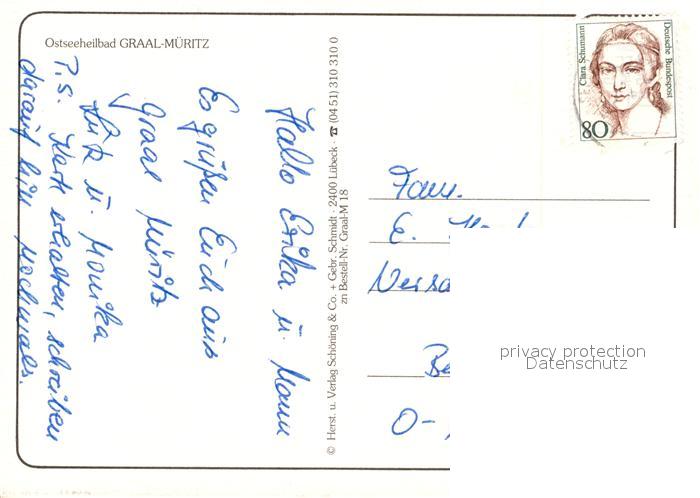 Ostseeheilbad GRAAL-MÜRITZ
Hallo Erika u. Mann
Es grüßen Euch aus
Graal Müritz
Lutz u. Monika
P.S. Karte erhalten, schreiben
darauf hin nochmals.
© Herst. u. Verlag Schöning & Co. + Gebr. Schmidt · 2400 Lübeck · ☎ (04 51) 310 310 0
zn Bestell-Nr. Graal-M 18
Clara Schumann
Deutsche Bundespost
80
Fam.
E.
O-
privacy protection
Datenschutz